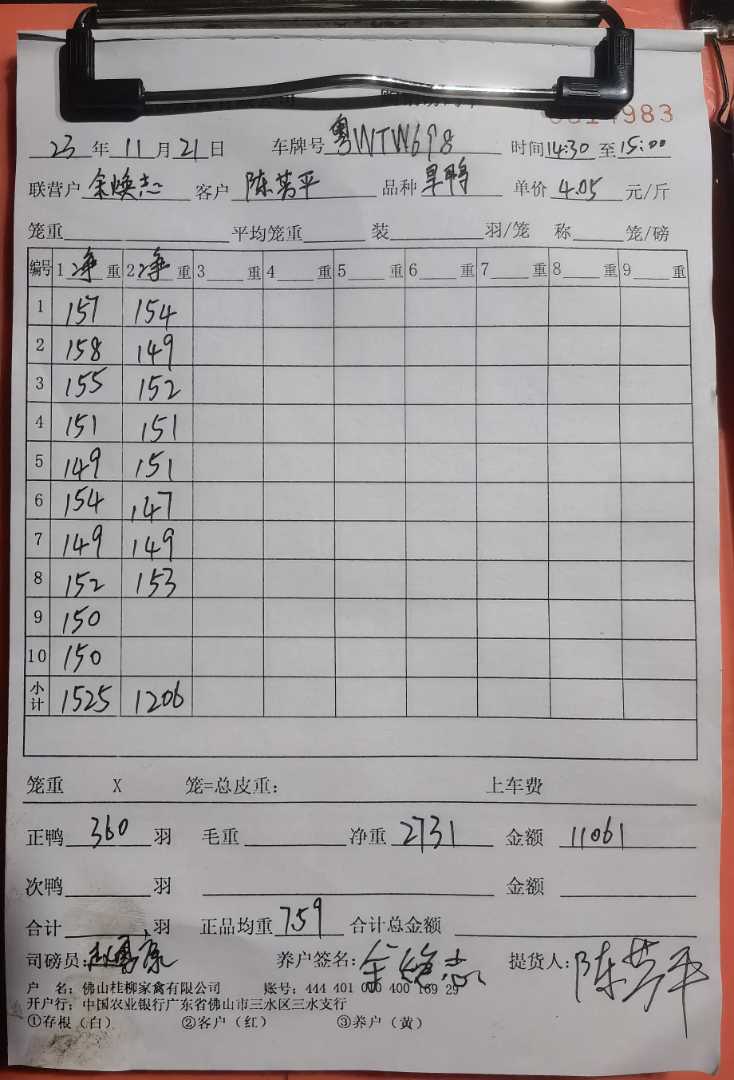 4983
23 年 11 月 21 日 车牌号 粤WTW698 时间 14:30 至 15:00
联营户 余焕志 客户 陈芳平 品种 旱鸭 单价 4.05 元/斤
笼重 平均笼重 装 羽/笼 称 笼/磅
编号 1 净 重 2 净 重 3 重 4 重 5 重 6 重 7 重 8 重 9 重
1 157 154
2 158 149
3 155 152
4 151 151
5 149 151
6 154 147
7 149 149
8 152 153
9 150
10 150
小计 1525 1206
笼重 X 笼=总皮重: 上车费
正鸭 360 羽 毛重 净重 2731 金额 11061
次鸭 羽 金额
合计 羽 正品均重 7.59 合计总金额
司磅员: 养户签名: 余焕志 提货人: 陈芳平
户 名: 佛山桂柳家禽有限公司 账号: 444 401 010 400 169 29
开户行: 中国农业银行广东省佛山市三水区三水支行
①存根（白） ②客户（红） ③养户（黄）